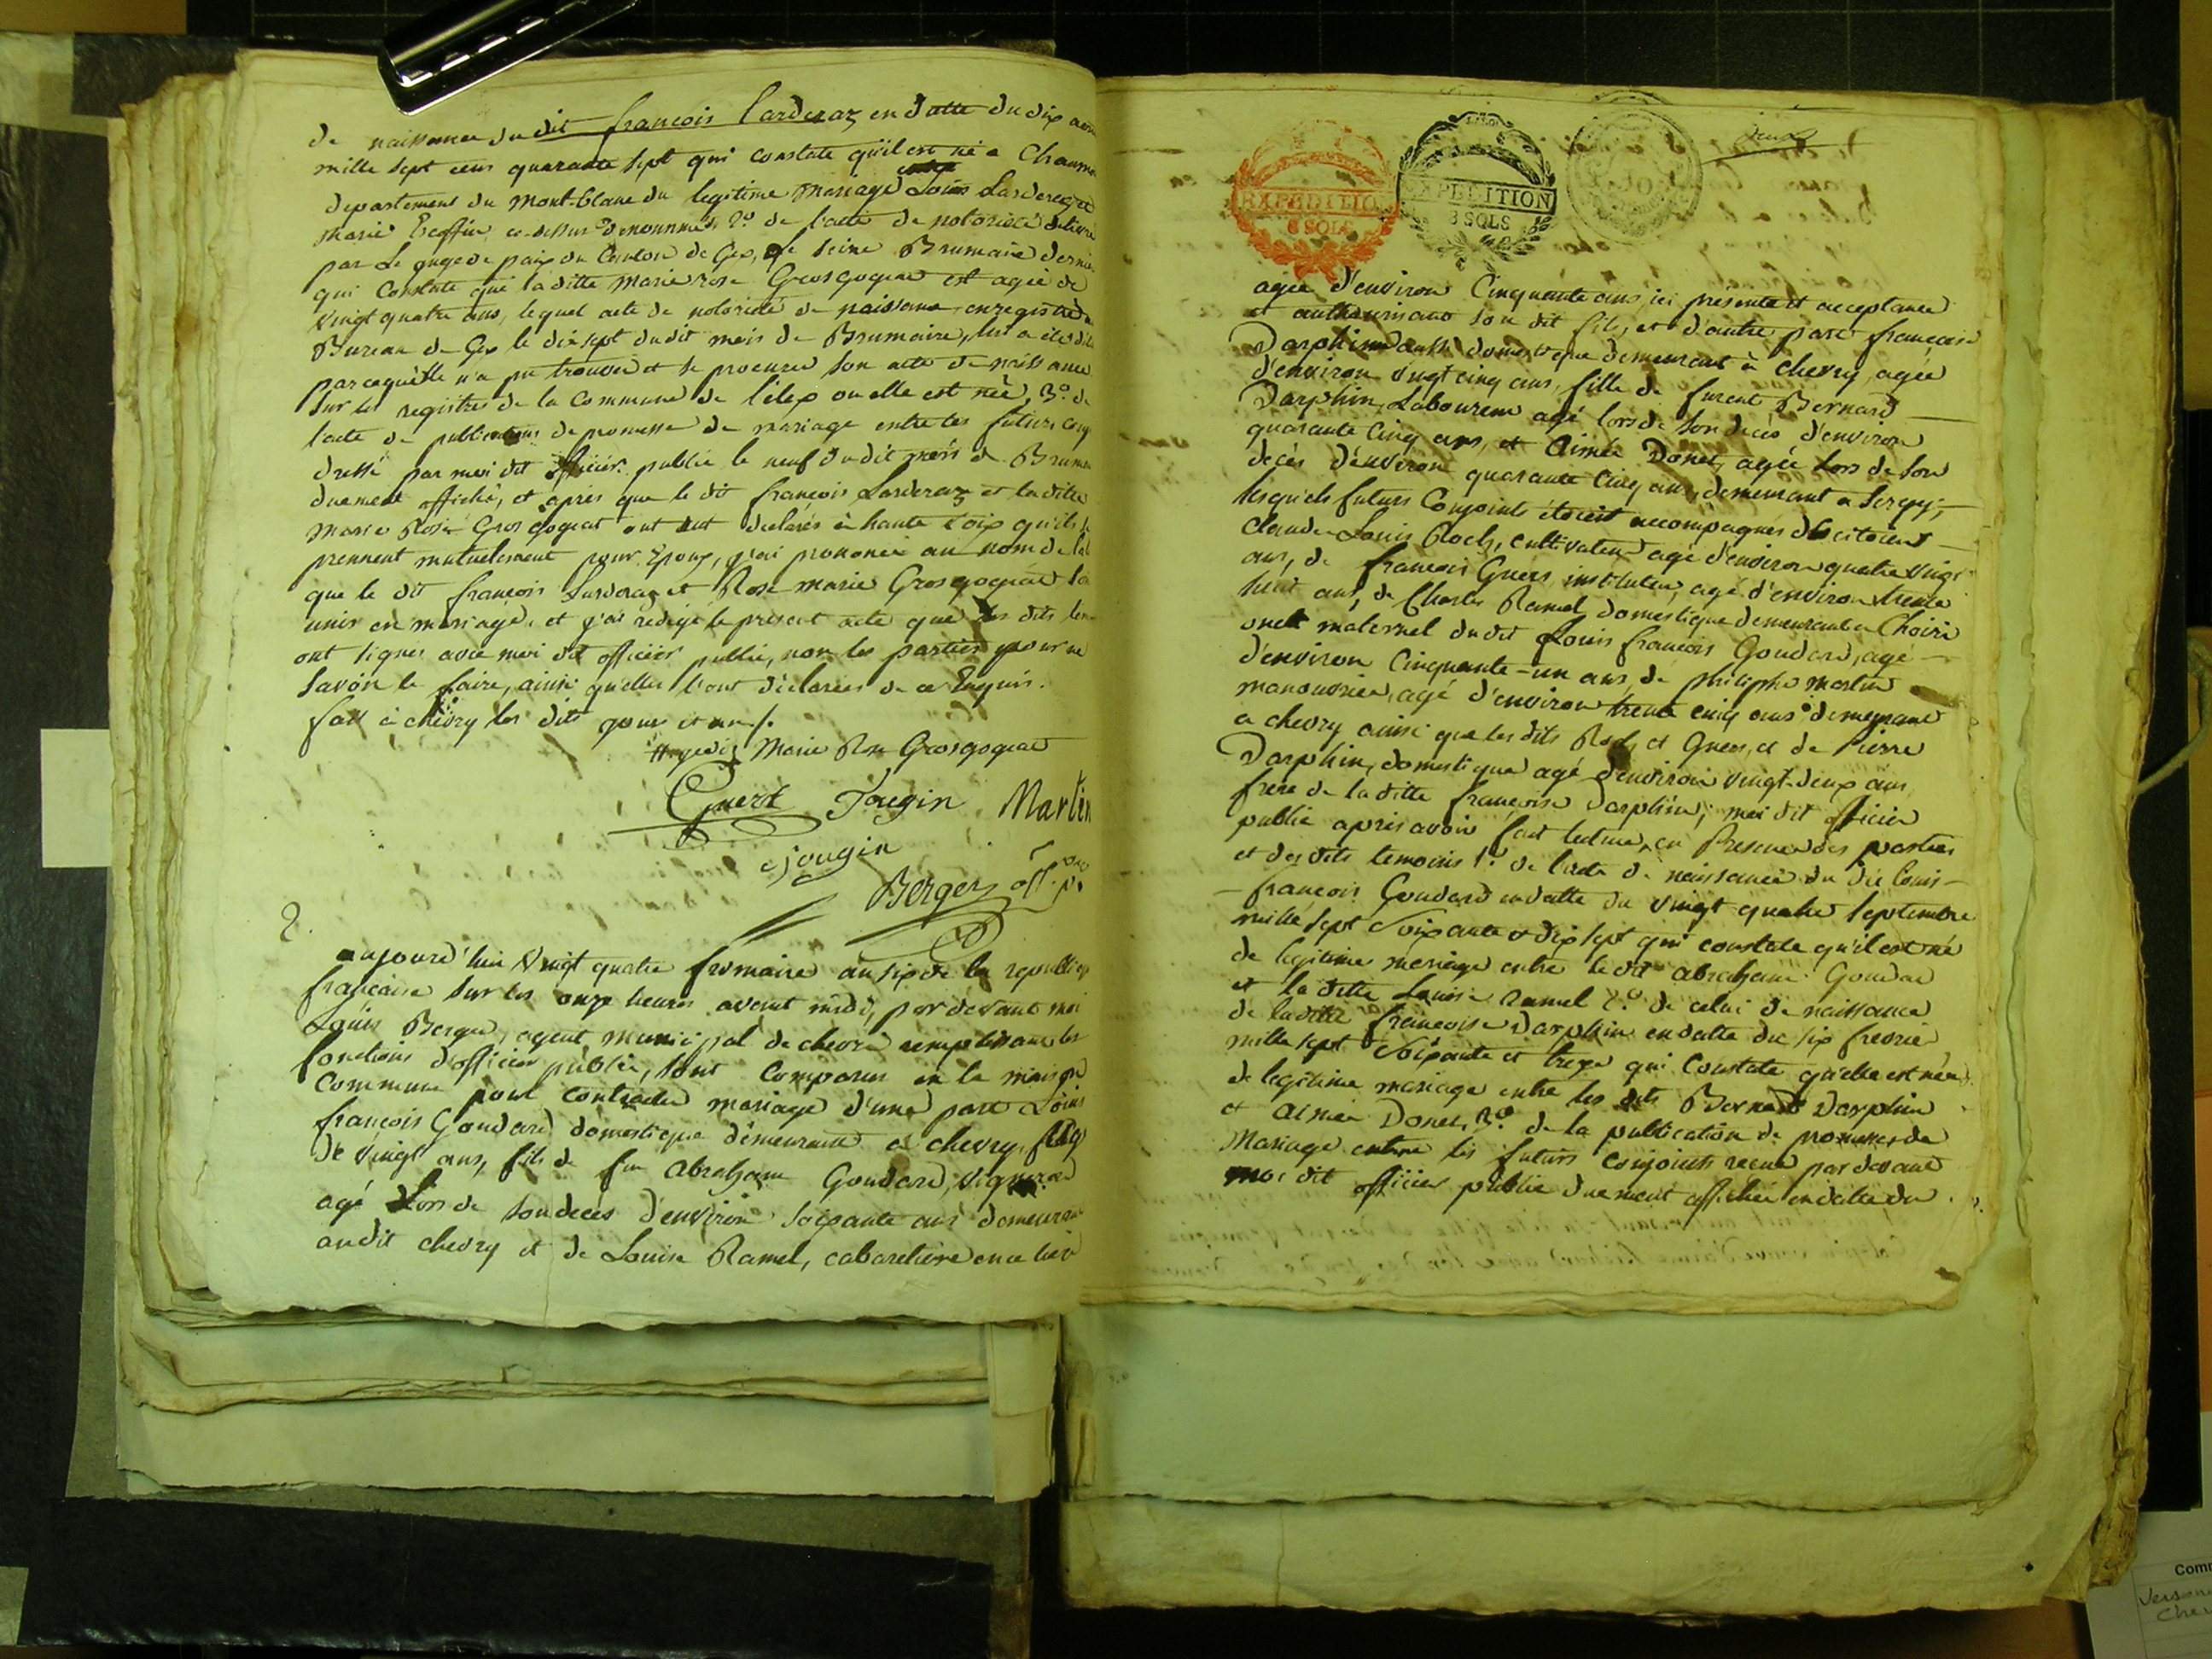 de naissance du dit françois Larderaz en datte du dix
mille sept cens quarante sept qui constate qu'il est né a
departement du Mont-blanc du legitime mariage Louis
Marie Escoffier ci-dessus denommés 2.º de l'acte de notorieté
par Le juge de paix du Canton de Gex, le seize Brumaire dernier
qui Constate que laditte Marie rose Grosgogeat est agée de
vingt quatre ans, lequel acte de notorieté de naissance enregistré
Bureau de Gex le dix sept dudit mois de Brumaire, lui a été
parcequ'elle n'a pu trouver et se procurer son acte de naissance
sur les registres de la Commune de Lélex ou elle est née, 3.º de
l'acte de publications de promesse de mariage entre les futurs
dressé par moi dit officier public le neuf dudit mois de
duement affiché, et après que le dit françois Larderaz et laditte
Marie Rose Grosgogeat ont eut declarés à haute voix qu'ils se
prennent mutuellement pour Epoux, j'ai prononcé au nom de la loi
que le dit françois Larderaz et Rose Marie Grosgogeat
unis en mariage, et j'ai redigé le present acte que les dits
ont signés avec moi dit officier public, non les parties pour ne
savoir le faire, ainsi qu'elles l'ont déclarées de ce Enquis.
fait à chevry les dits jour et an ./.
Marie Rose Grosgogeat
Guers Jougin Martin
Jougin
Berger off. p.
2.
aujourd'hui vingt quatre frimaire an six de la republique
française sur les onze heures avant midi, par devant moi
Louis Berger, agent municipal de chevri remplissant les
fonctions d'officier public, sont comparus en la maison
Commune pour contracter mariage d'une part Louis
françois Goudard domestique demeurant a chevry
de vingt ans, fils de feu Abraham Goudard, vigneron
agé lors de son decès d'environ soixante ans demeurant
audit chevry et de Louise Ramel, cabaretiere en ce lieu
deux
EXPEDITION
3 SOLS
EXPEDITION
3 SOLS
agée d'environ Cinquante ans, ici présente et acceptante
et authorisant son dit fils, et d'autre part françoise
Darphin aussi domestique demeurant à chevry, agée
d'environ vingt cinq ans, fille de furent Bernard
Darphin, Laboureur agé lors de son decès d'environ
quarante Cinq ans, et Aimée Donet, agée lors de son
decès d'environ quarante Cinq ans, demeurant a Sergy;
lesquels futurs Conjoints étoient accompagnés des citoiens
Claude-Louis Roch, cultivateur agé d'environ quatre vingt
ans, de françois Guers, instituteur, agé d'environ trente
huit ans, de Charles Ramel domestique demeurant a Choiri
oncle maternel dudit Louis françois Goudard, agé
d'environ Cinquante-un ans, de philiphe Martin
manouvrier, agé d'environ trente cinq ans demeurant
a chevry ainsi que les dits Roch et Guers, et de Pierre
Darphin, domestique agé d'environ vingt-deux ans
frere de laditte françoise Darphin; moi dit officier
public après avoir fait lecture, en Presence des parties
et des dits temoins 1.º de l'acte de naissance du dit Louis-
françois Goudard en datte du vingt-quatre septembre
mille sept soixante et dix sept qui constate qu'il est né
de legitime mariage entre ledit abraham Goudard
et laditte Louise Ramel 2.º de celui de naissance
de laditte françoise Darphin en datte du six fevrier
mille sept soixante et treze qui Constate qu'elle est née
de legitime mariage entre les dits Bernard Darphin
et Aimée Donet, 3.º de la publication de promesse de
Mariage entre les futurs conjoints recue par devant
moi dit officier public duement affichée en datte du
Comm